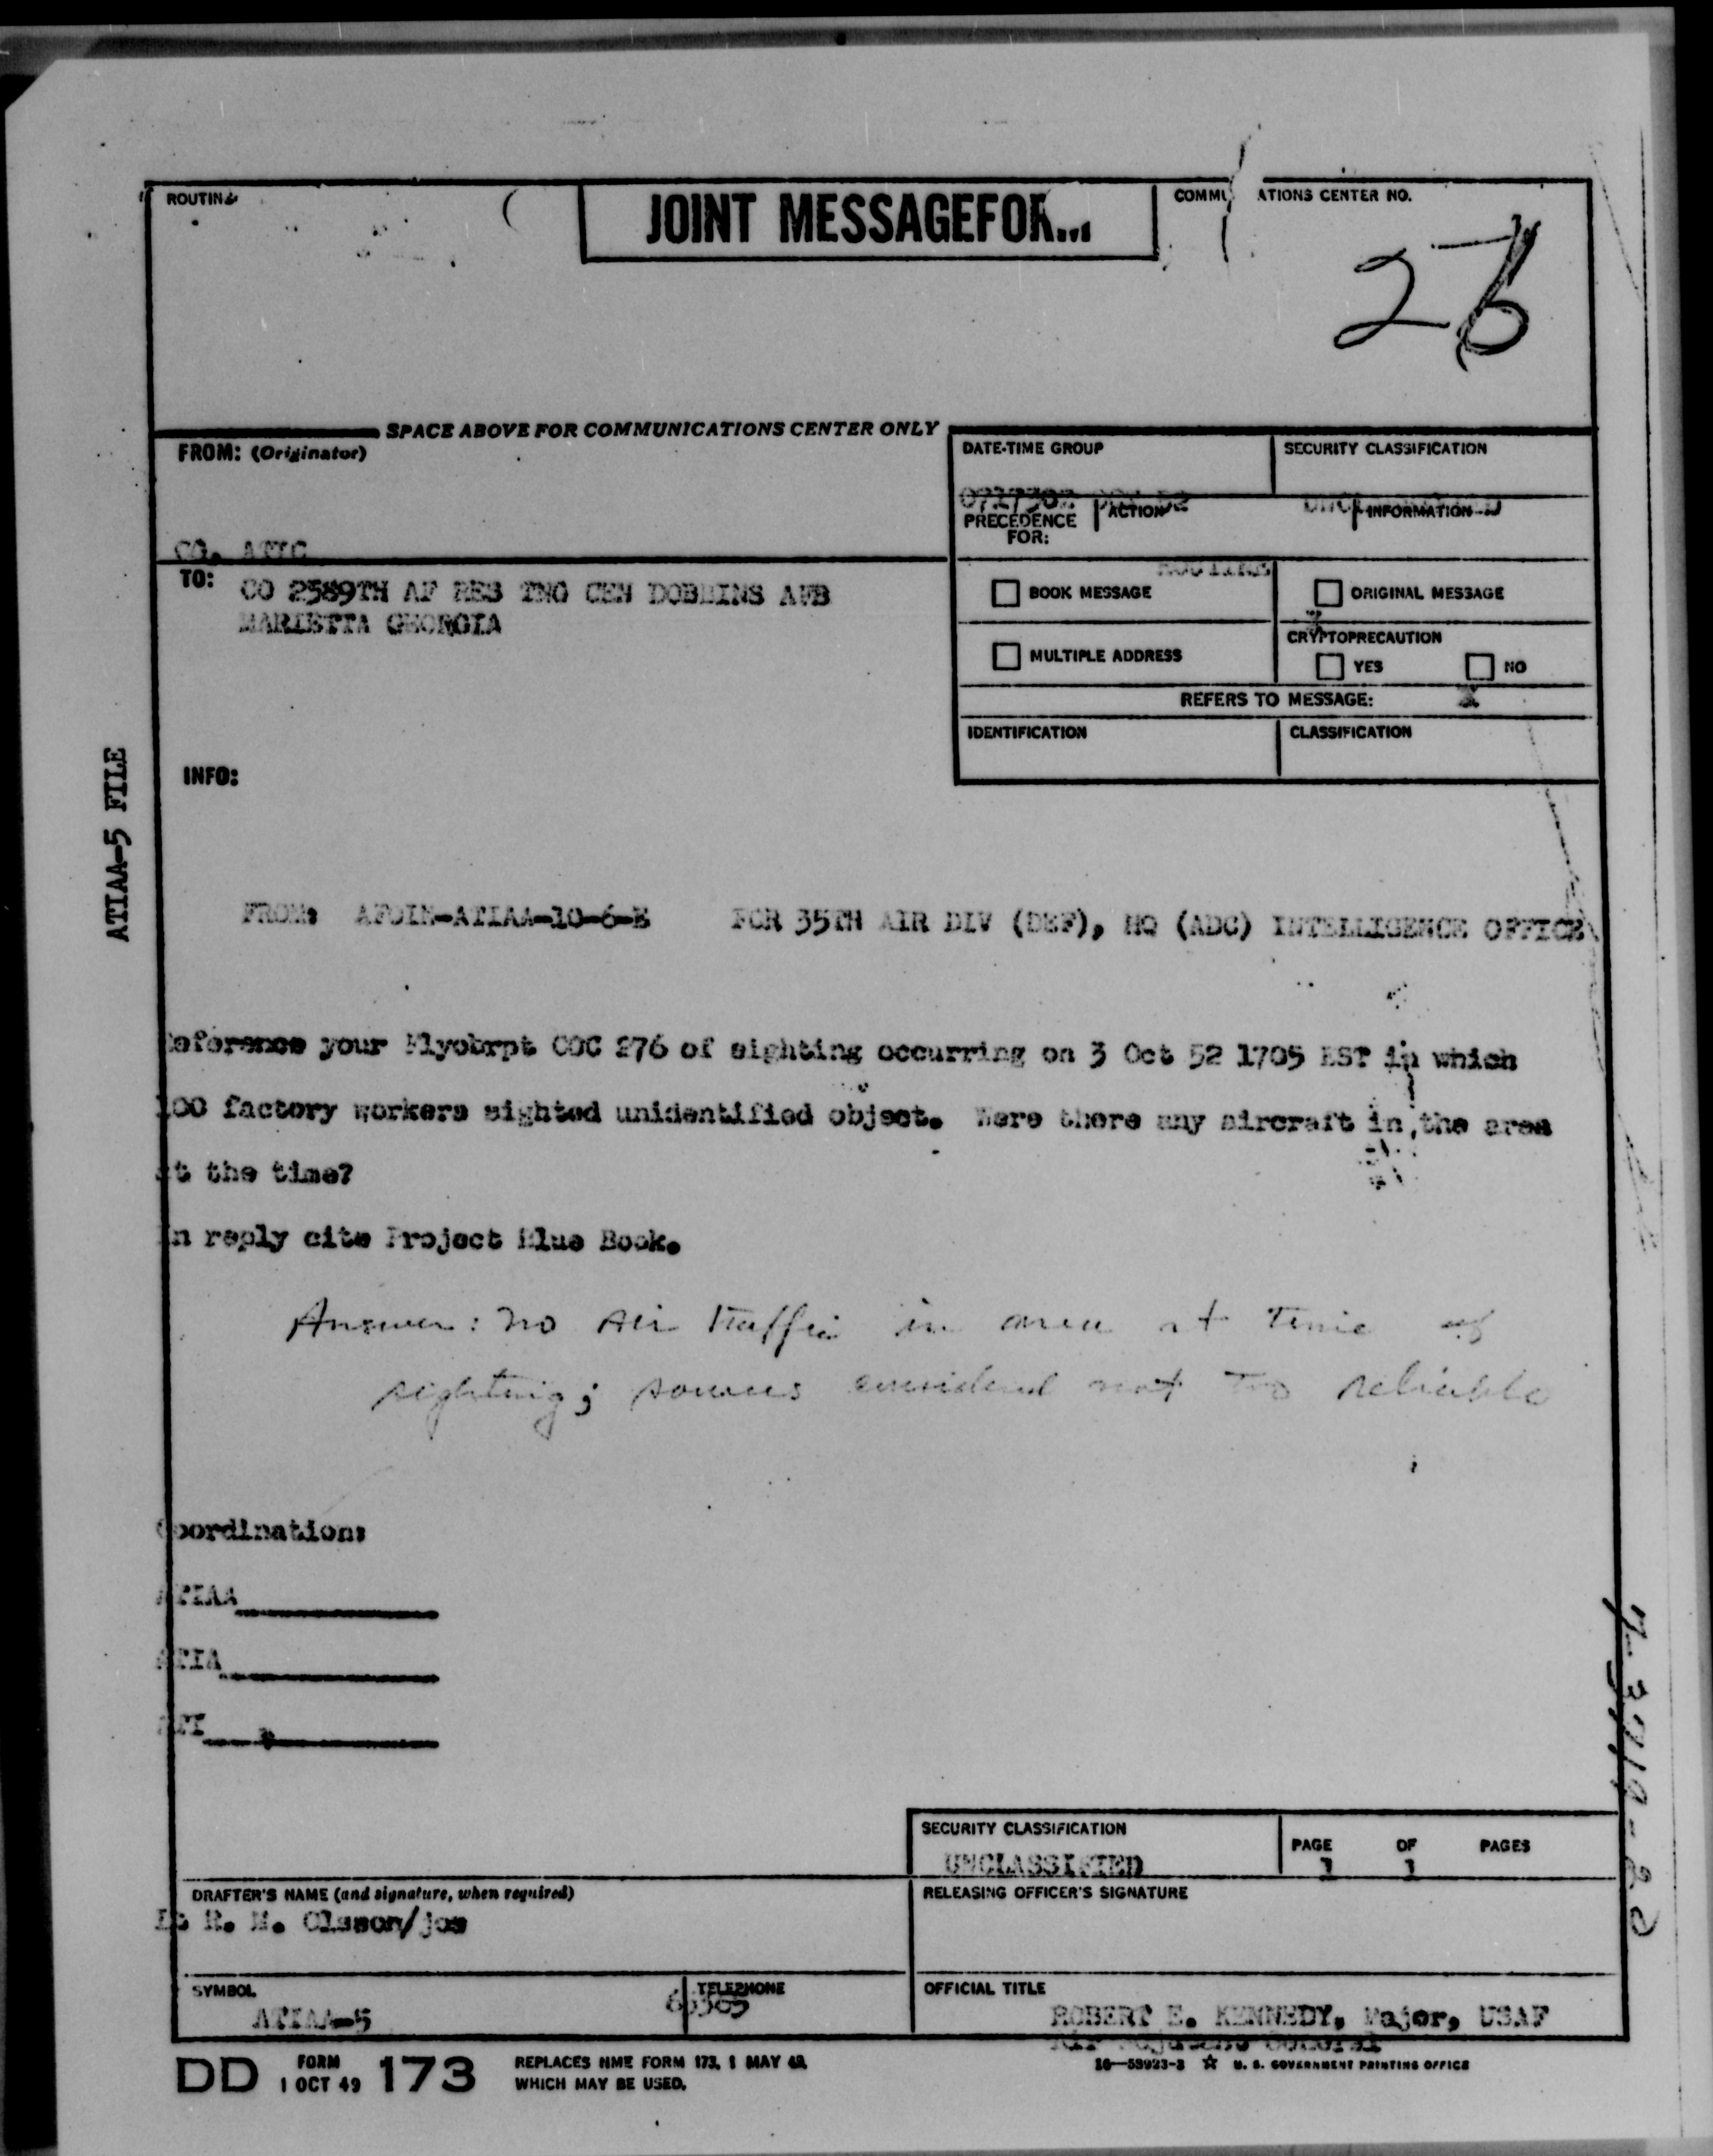 ROUTING
JOINT MESSAGEFORM
COMMU ATIONS CENTER NO.
26
SPACE ABOVE FOR COMMUNICATIONS CENTER ONLY
FROM: (Originator)
CO. ATIC
DATE-TIME GROUP
SECURITY CLASSIFICATION
071730Z OCT 52
UNCLASSIFIED
PRECEDENCE FOR:
ACTION
INFORMATION
ROUTINE
TO: CO 2589TH AF RES TNG CEN DOBBINS AFB
MARIETTA GEORGIA
BOOK MESSAGE
ORIGINAL MESSAGE
X
MULTIPLE ADDRESS
CRYPTOPRECAUTION
YES
NO
X
REFERS TO MESSAGE:
IDENTIFICATION
CLASSIFICATION
INFO:
ATIAA-5 FILE
FROM: AFOIN-ATIAA-10-6-E FOR 35TH AIR DIV (DEF), HQ (ADC) INTELLIGENCE OFFICE
Reference your Flyobrpt COC 276 of sighting occurring on 3 Oct 52 1705 EST in which
100 factory workers sighted unidentified object. Were there any aircraft in the area
at the time?
In reply cite Project Blue Book.
Answer: no air traffic in area at time of
sighting; sources considered not too reliable
Coordination:
ATIAA
ATIA
ATI
SECURITY CLASSIFICATION
UNCLASSIFIED
PAGE 1 OF 1 PAGES
DRAFTER'S NAME (and signature, when required)
Lt R. M. Olsson/jos
RELEASING OFFICER'S SIGNATURE
SYMBOL
ATIAA-5
TELEPHONE
65365
OFFICIAL TITLE
ROBERT E. KENNEDY, Major, USAF
Air Adjutant General
DD FORM 1 OCT 49 173
REPLACES NME FORM 173, 1 MAY 48,
WHICH MAY BE USED.
16—58923-3 ☆ U. S. GOVERNMENT PRINTING OFFICE